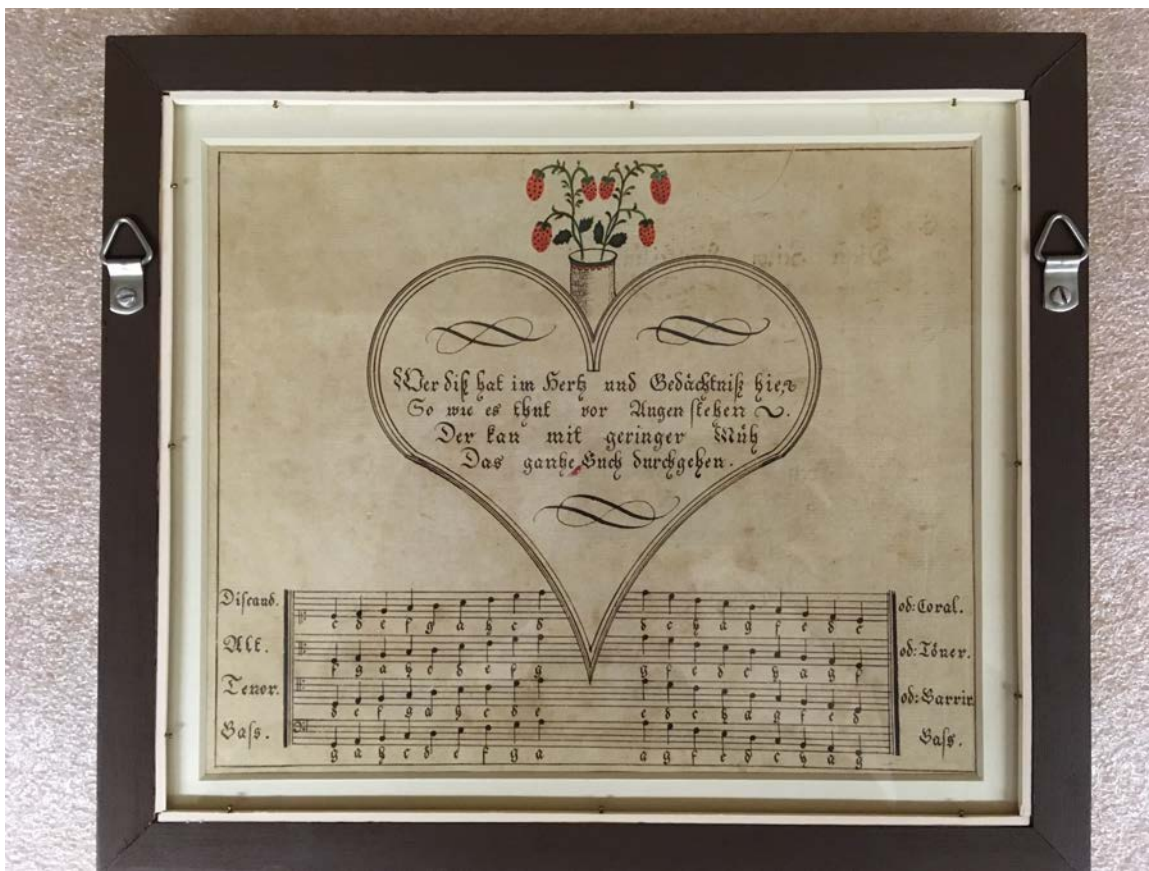 Wer diß hat im Hertz und Gedächtniß hie,
So wie es thut vor Augen stehen ~.
Der kan mit geringer Müh
Das gantze Buch durchgehen.
Discand. c d e f g a h c d d c h a g f e d c od: Coral.
Alt. f g a h c d e f g g f e d c h a g f od: Töner.
Tenor. d e f g a h c d e e d c h a g f e d od: Barrir
Baſs. g a h c d e f g a a g f e d c h a g Baſs.